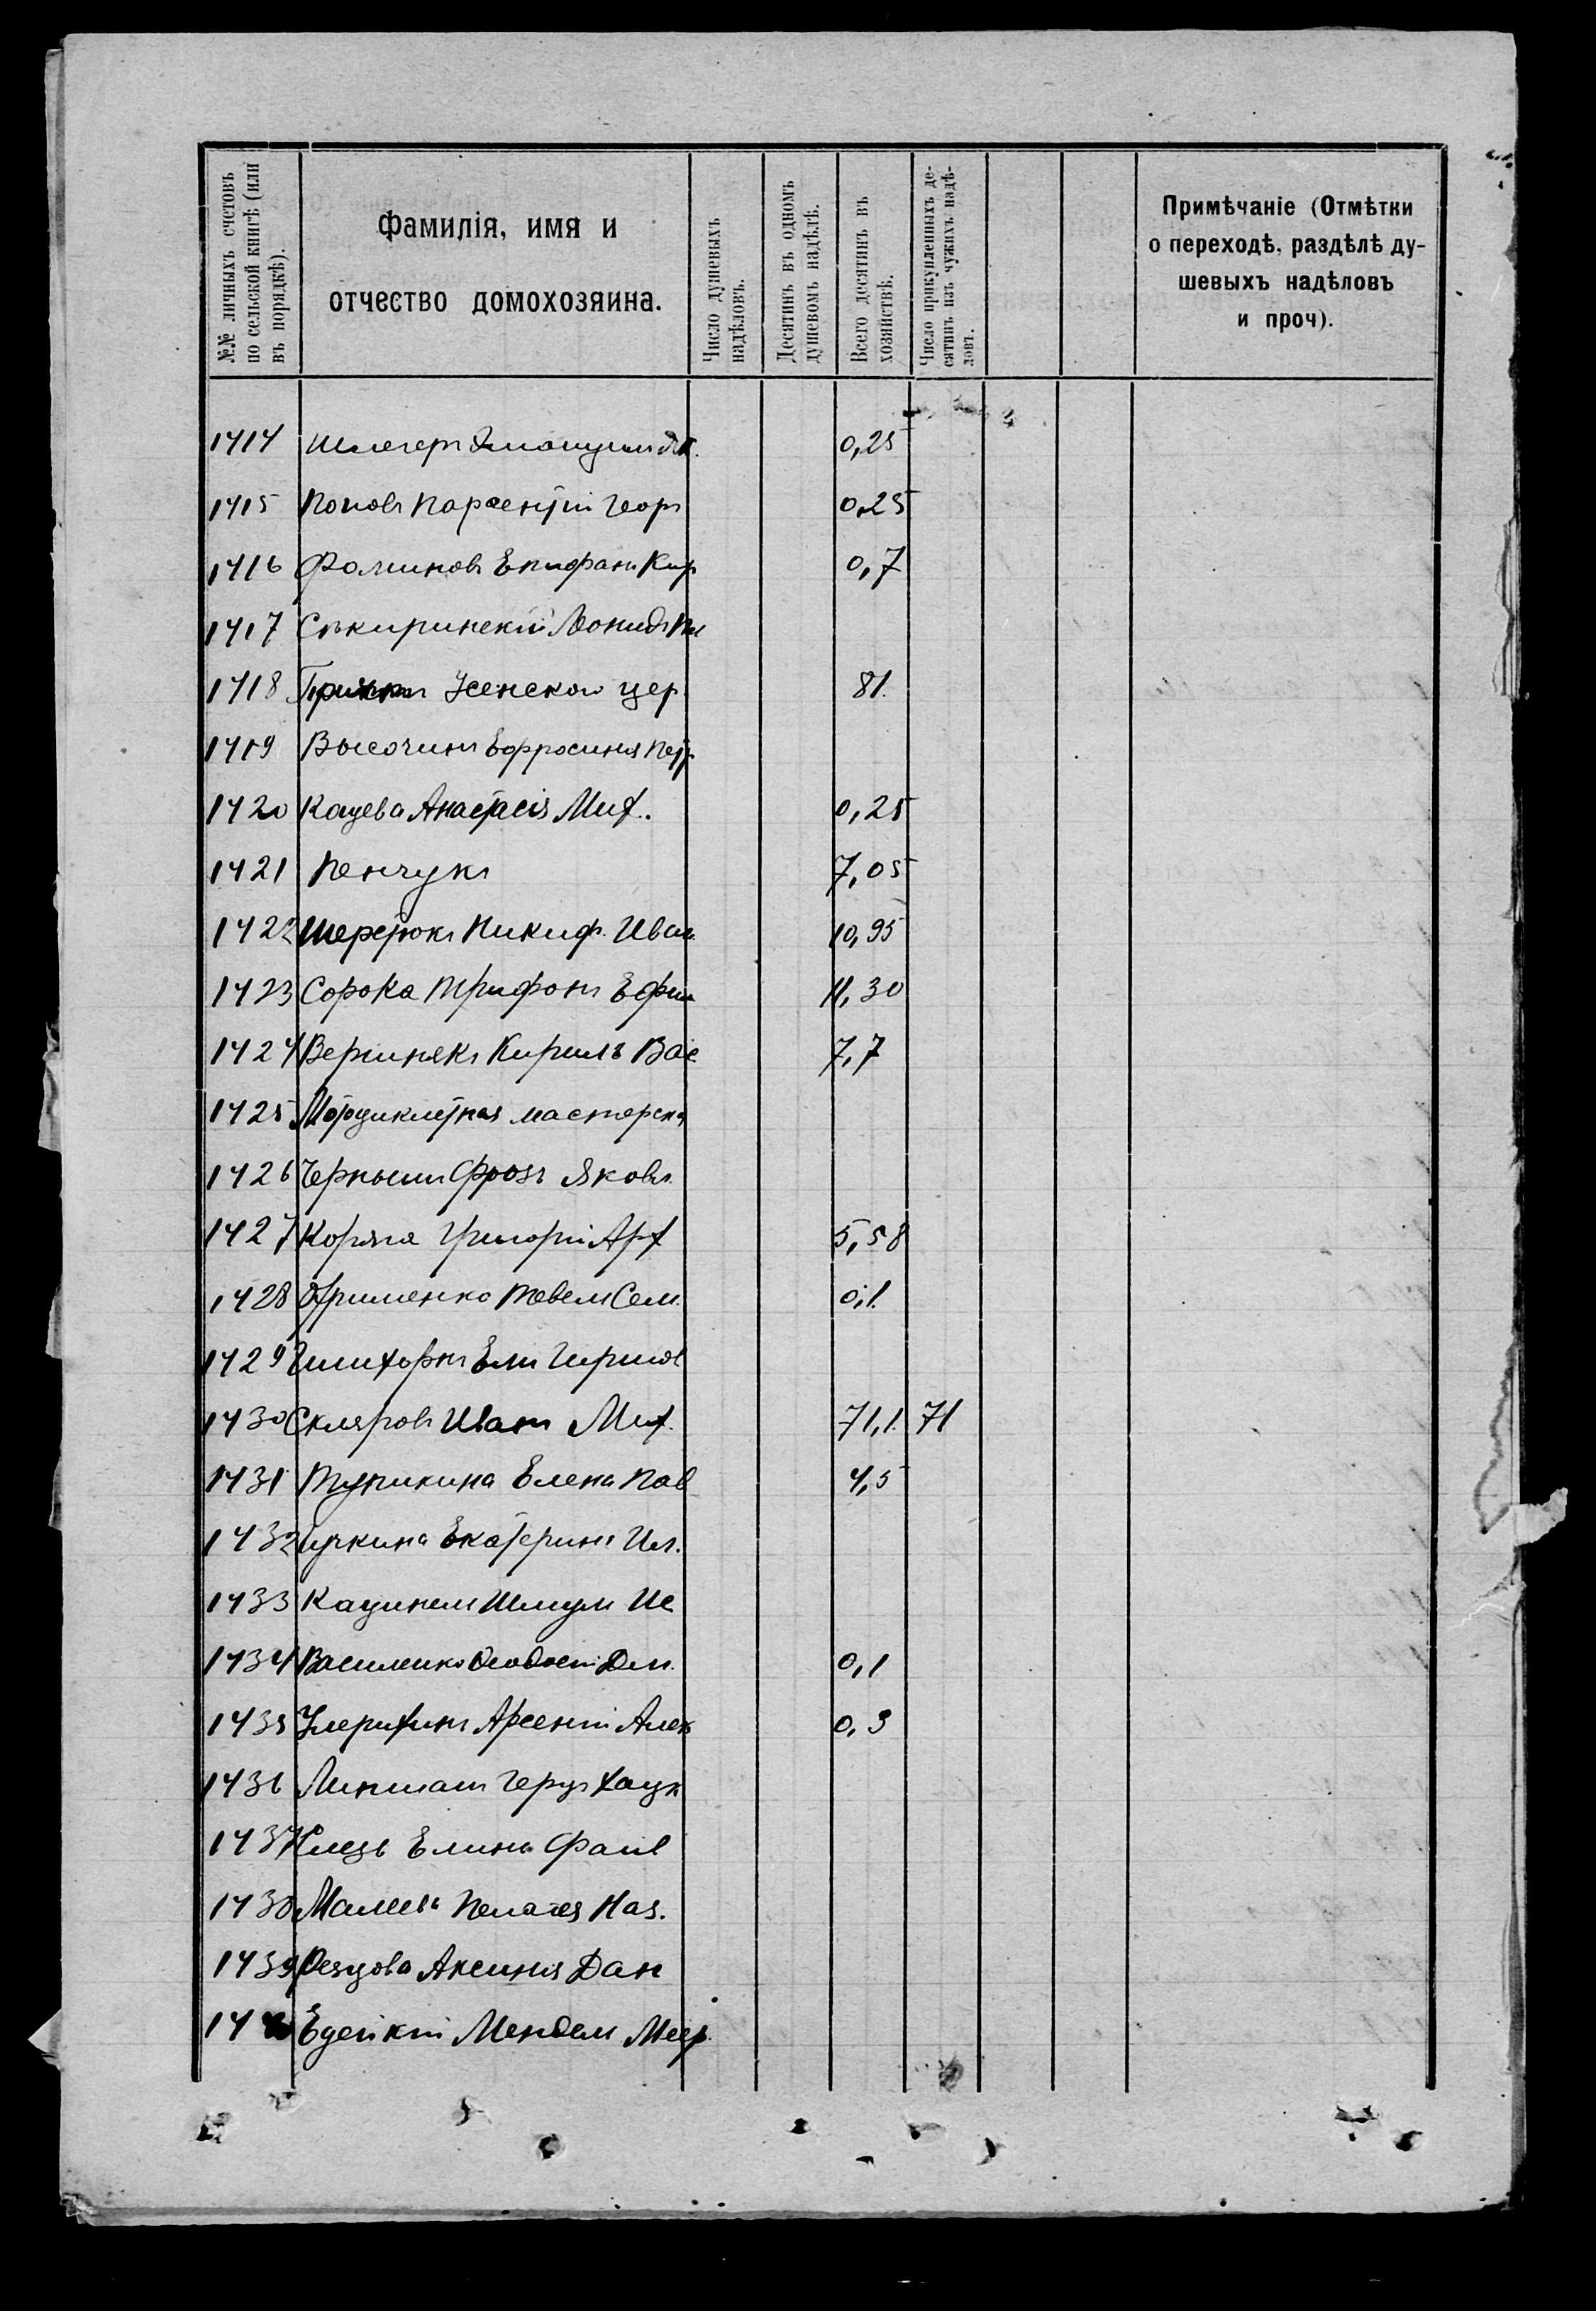 №№ личныхъ счетовъ по сельской книгѣ (или въ порядкѣ).
Фамилія, имя и отчество домохозяина.
Число душевыхъ надѣловъ.
Десятинъ въ одномъ душевомъ надѣлѣ.
Всего десятинъ въ хозяйствѣ.
Число прикупленныхъ десятинъ изъ чужихъ надѣловъ.
Примѣчаніе (Отмѣтки
о переходѣ, раздѣлѣ ду-
шевыхъ надѣловъ
и проч).
1414 0,25
1415 Поповъ Парфентій Георг 0,25
1416 Фоминовъ Епифанъ Кир 0,7
1417 Сѣкиринскій Леонидъ
1418 Успенской цер. 81.
1419 Высочинъ Ефросинія Петр
1420 Кацева Анастасія Мих. 0,25
1421 Пенчукъ 7,05
1422 Шерстюкъ Никиф. Иван 10,95
1423 Сорока Трифонъ Ефим 11,30
1424 Вершнякъ Кирилъ Вас 7,7
1425 Мотоциклетная мастерска
1426 Чернышъ Фрозъ Яковл.
1427 Коряга Григорій Арх 5,58
1428 Охрименко Павелъ Сем. 0,1.
1429 Гершов
1430 Скляровъ Иванъ Мих. 71,1. 71
1431 Тупикина Елена Пав 4,5
1432 Екатерина Ил.
1433 Шмулъ
1434 Василенко Феодосій Дем. 0,1
1435 Улерихинъ Арсентій Алек 0,3
1436 Липманъ Герцъ Хацк
1437 Елинъ
1438 Пелагея Наз.
1439 Резцова Аксинія Дан
1440 Мендель Меер.